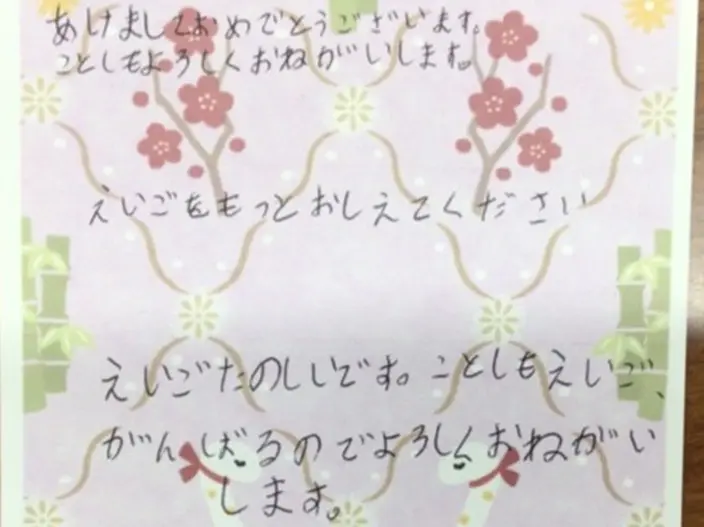 あけましておめでとうございます。
ことしもよろしくおねがいします。
えいごをもっとおしえてください
えいごたのしいです。ことしもえいご、
がんばるのでよろしくおねがい
します。